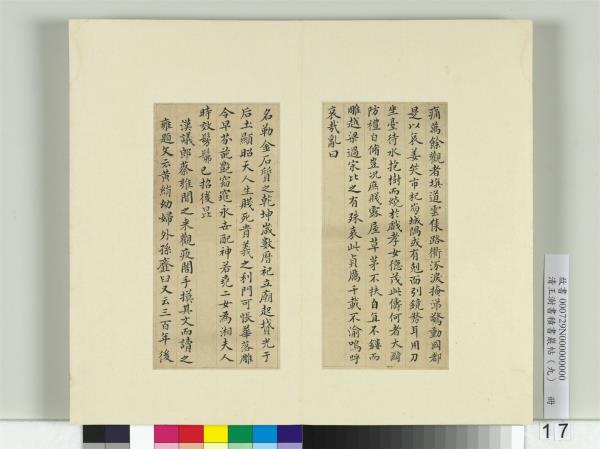 痛萬餘觀者填道雲集路衢泫淚掩涕驚動國都
是以哀姜哭市杞崩城隅或有剋面引鏡剺耳用刀
坐臺待水抱樹而燒於戲孝女德茂此儔何者大國
防禮自脩豈況庶賤露屋草茅不扶自直不鏤而
雕越梁過宋比之有殊哀此貞厲千載不渝嗚呼
哀哉亂曰
名勒金石質之乾坤歲數曆祀立廟起墳光于
后土顯昭天人生賤死貴義之利門可悵華落雕
令早分葩艷窈窕永世配神若堯二女為湘夫人
時效髣髴已招後昆
漢議郎蔡雍聞之來觀夜闇手摸其文而讀之
雍題文云黃絹幼婦外孫齏臼又云三百年後
故書 000729N000000000
清王澍書積書巖帖(九) 冊
17